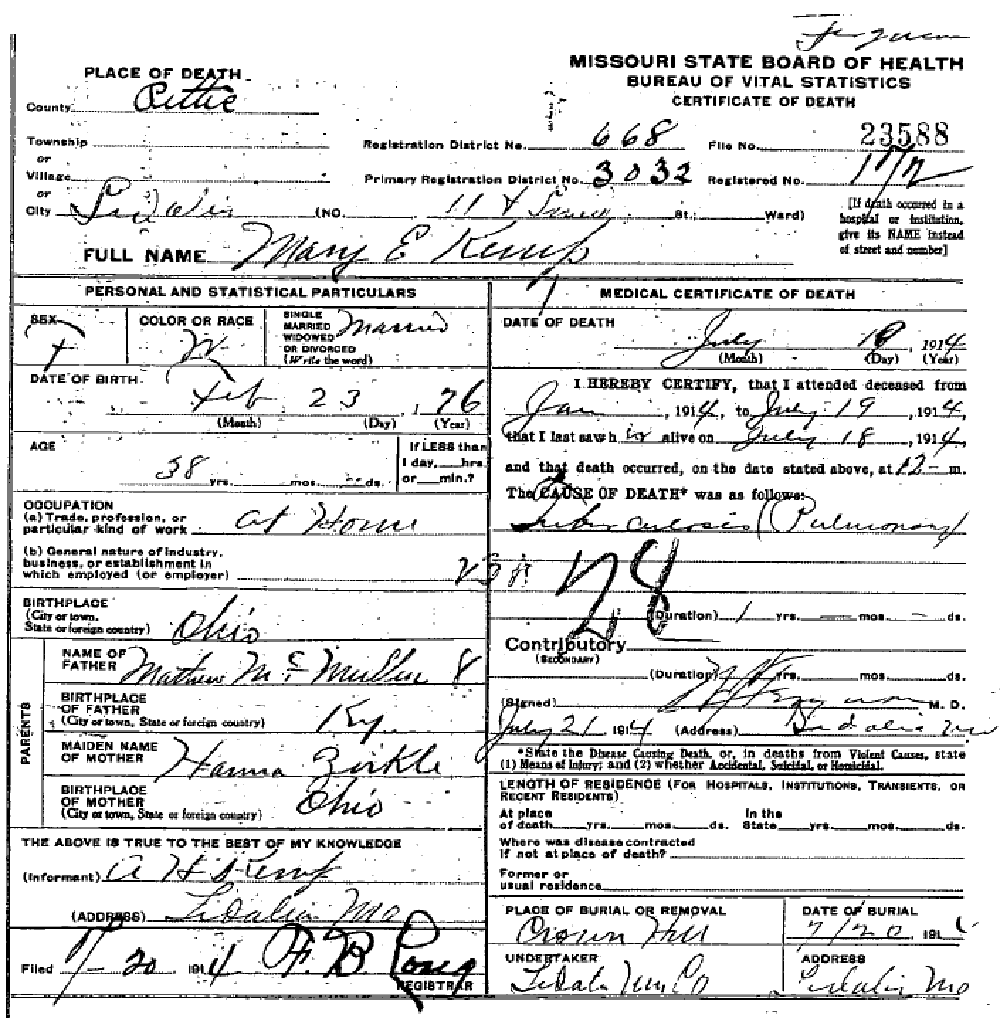 Ferguson
MISSOURI STATE BOARD OF HEALTH
BUREAU OF VITAL STATISTICS
CERTIFICATE OF DEATH
PLACE OF DEATH
County Pettis
Township
or
Village
or
City Sedalia (NO. 11 & St. Ward)
Registration District No. 668 File No. 23588
Primary Registration District No. 3032 Registered No.
[If death occurred in a
hospital or institution,
give its NAME instead
of street and number]
FULL NAME Mary E Kemp
PERSONAL AND STATISTICAL PARTICULARS
SEX F
COLOR OR RACE W
SINGLE
MARRIED
WIDOWED
OR DIVORCED
(Write the word) Married
DATE OF BIRTH Feb 23, 1 76
(Month) (Day) (Year)
AGE 38 yrs. mos. ds.
If LESS than
1 day, hrs.
or min.?
OCCUPATION
(a) Trade, profession, or
particular kind of work At Home
(b) General nature of industry,
business, or establishment in
which employed (or employer)
BIRTHPLACE
(City or town,
State or foreign country) Ohio
PARENTS
NAME OF
FATHER Mathew McMullen 8
BIRTHPLACE
OF FATHER
(City or town, State or foreign country) Ky.
MAIDEN NAME
OF MOTHER Hanna Zirkle
BIRTHPLACE
OF MOTHER
(City or town, State or foreign country) Ohio
THE ABOVE IS TRUE TO THE BEST OF MY KNOWLEDGE
(Informant) A H Kemp
(ADDRESS) Sedalia Mo
Filed 7-20 1914 F. B. Long
REGISTRAR
MEDICAL CERTIFICATE OF DEATH
DATE OF DEATH July 19, 1914
(Month) (Day) (Year)
I HEREBY CERTIFY, that I attended deceased from
Jan, 1914, to July 19, 1914,
that I last saw h er alive on July 18, 1914,
and that death occurred, on the date stated above, at 12 - m.
The CAUSE OF DEATH* was as follows:
Tuberculosis (Pulmonary)
28
(Duration) 1 yrs. mos. ds.
Contributory
(SECONDARY)
(Duration) yrs. mos. ds.
(Signed) Ferguson M. D.
July 21 1914 (Address) Sedalia Mo
*State the Disease Causing Death, or, in deaths from Violent Causes, state
(1) Means of Injury; and (2) whether Accidental, Suicidal, or Homicidal.
LENGTH OF RESIDENCE (FOR HOSPITALS, INSTITUTIONS, TRANSIENTS, OR
RECENT RESIDENTS)
At place In the
of death yrs. mos. ds. State yrs. mos. ds.
Where was disease contracted
If not at place of death?
Former or
usual residence
PLACE OF BURIAL OR REMOVAL
Crown Hill
DATE OF BURIAL
7/20 191
UNDERTAKER
Sedalia Co
ADDRESS
Sedalia Mo